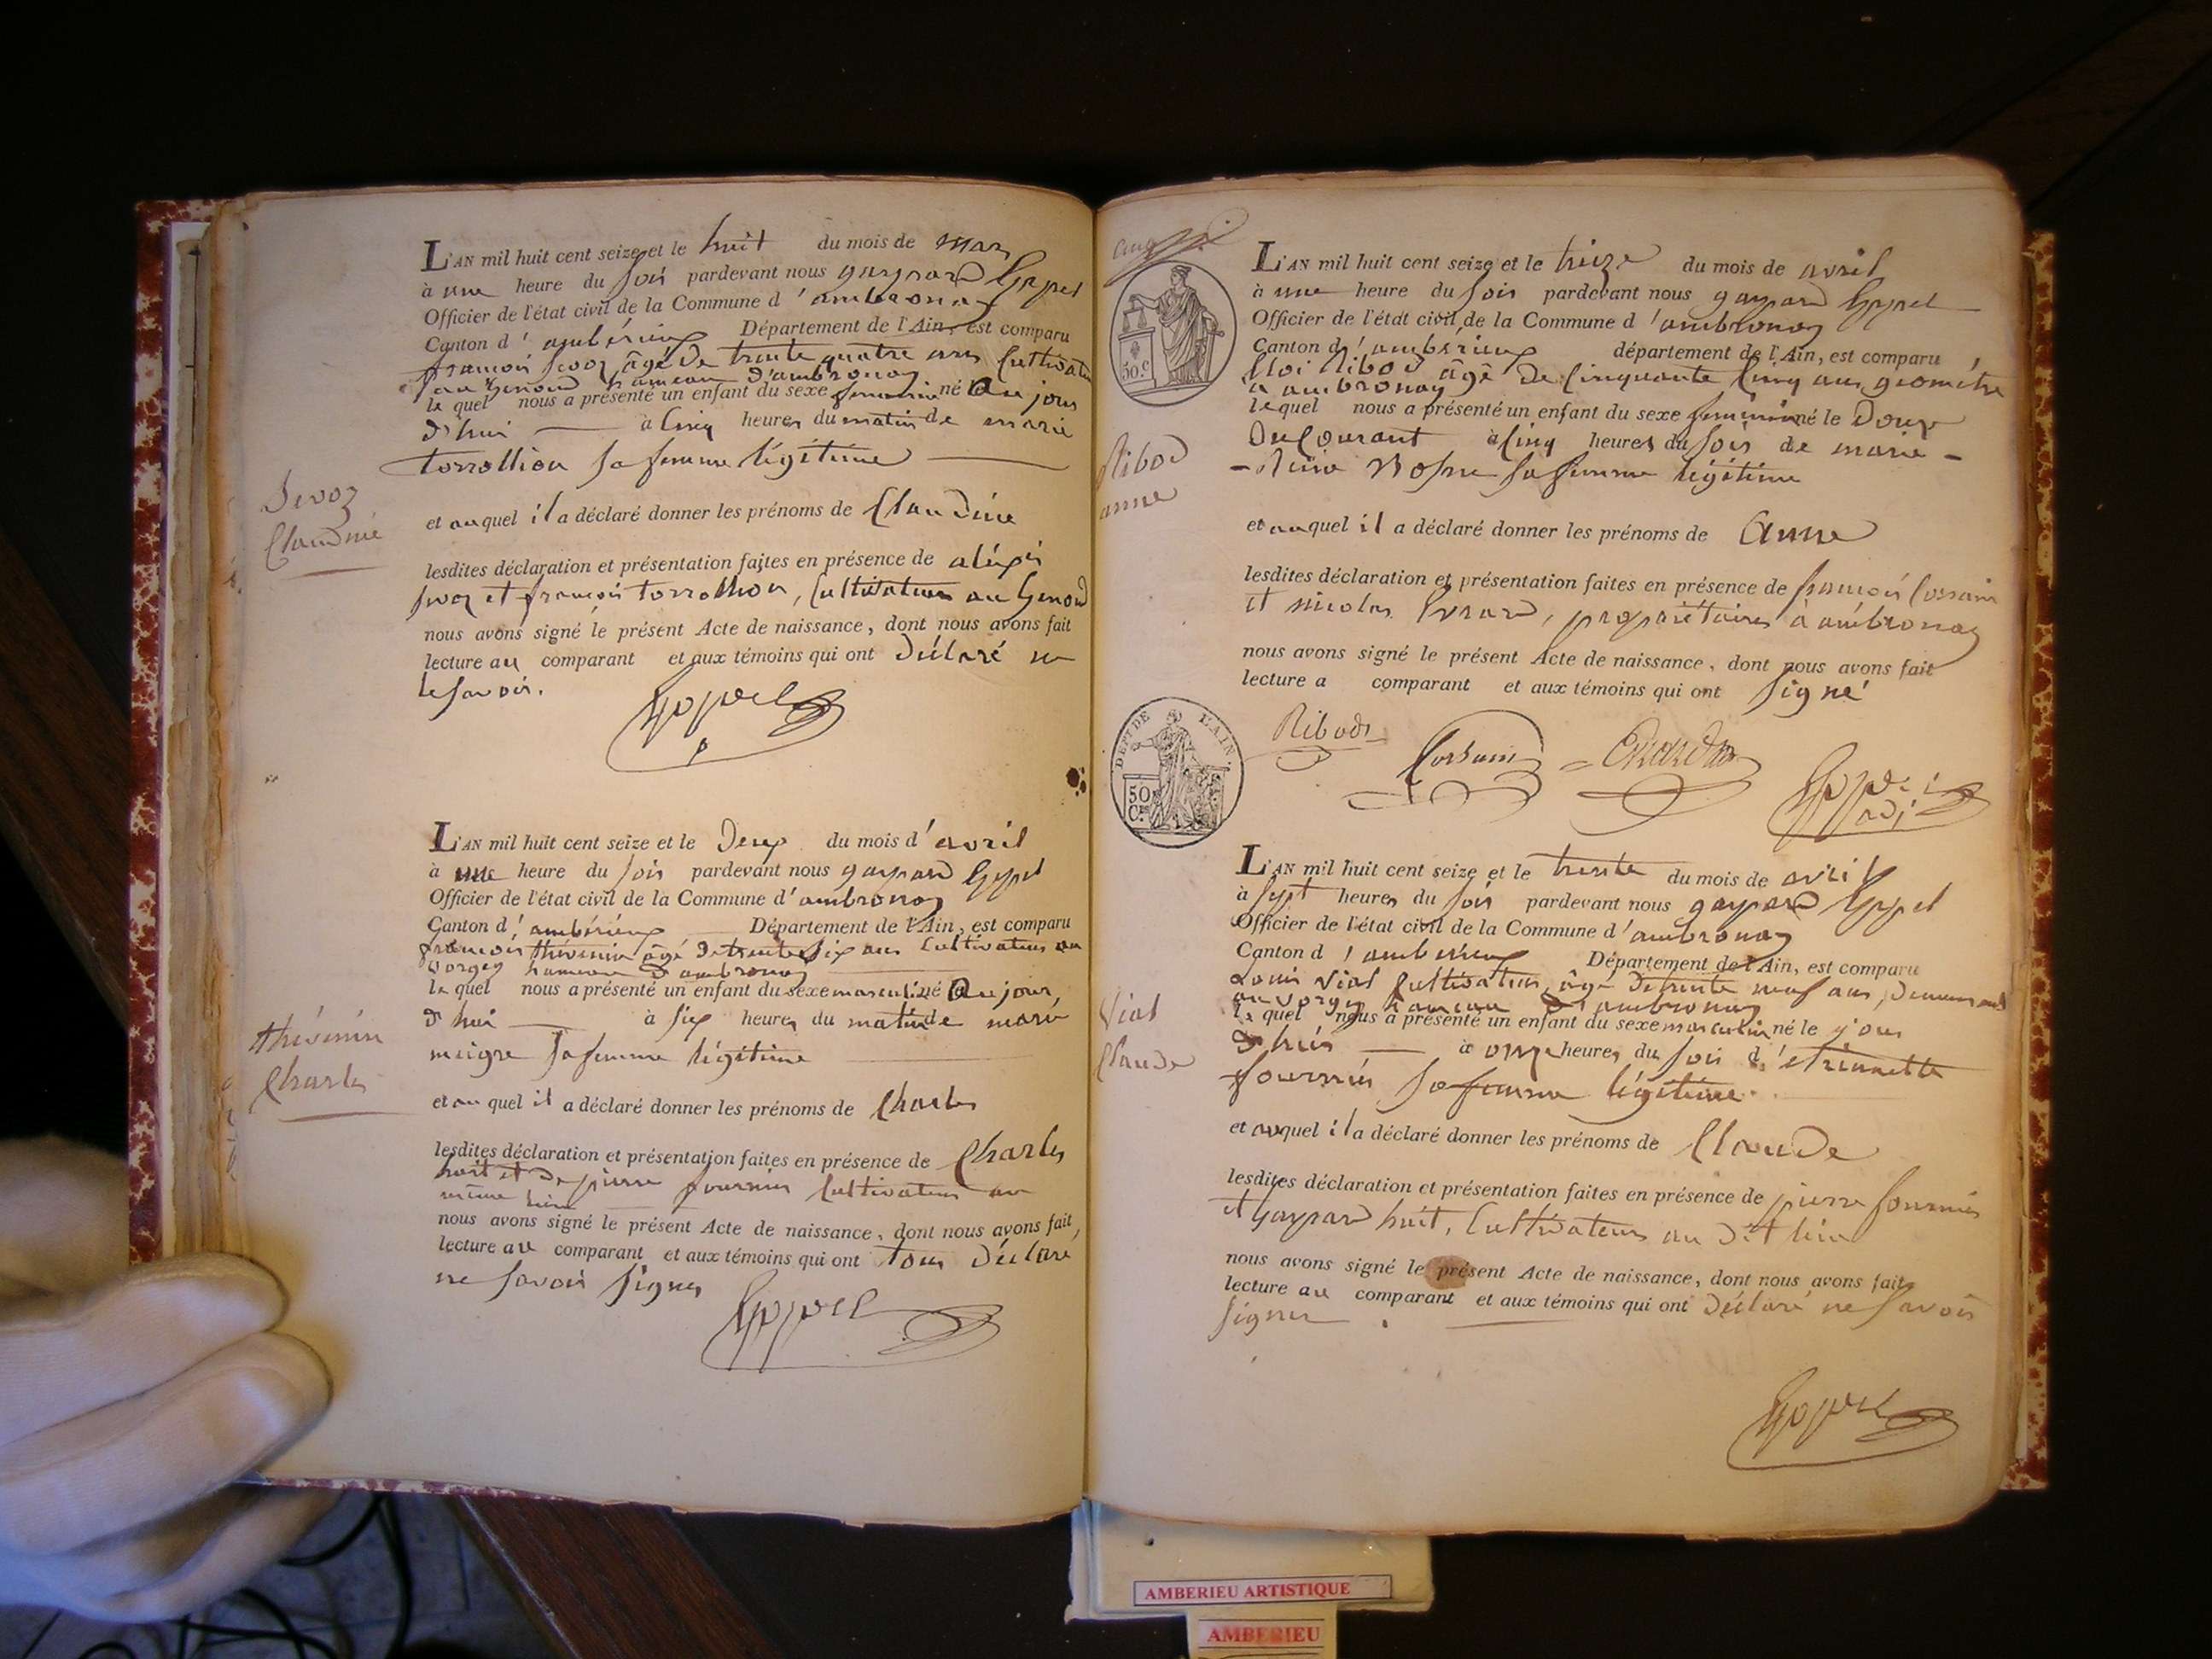 L'AN mil huit cent seize et le huit du mois de mars
à une heure du soir pardevant nous gaspard
Officier de l'état civil de la Commune d'ambronay
Canton d'ambérieux Département de l'Ain, est comparu
françois âgé de trente quatre ans cultivateur
au genoud hameau d'ambronay
lequel nous a présenté un enfant du sexe feminin né aujour
d'hui à cinq heures du matin de marie
torrollion sa femme légitime
Claudine
et auquel il a déclaré donner les prénoms de Claudine
lesdites déclaration et présentation faites en présence de aléxis
et françois torrollion, cultivateurs au Genoud
nous avons signé le présent Acte de naissance, dont nous avons fait
lecture au comparant et aux témoins qui ont déclaré ne
le savoir.
L'AN mil huit cent seize et le deux du mois d'avril
à une heure du soir pardevant nous gaspard
Officier de l'état civil de la Commune d'ambronay
Canton d'ambérieux Département de l'Ain, est comparu
françois thévenin âgé de trente six ans cultivateur au
vorgey hameau d'ambronay
lequel nous a présenté un enfant du sexe masculin né aujour
d'hui à six heures du matin de marie
meigre sa femme légitime
thévenin
Charles
et auquel il a déclaré donner les prénoms de Charles
lesdites déclaration et présentation faites en présence de Charles
huit et de pierre fournier cultivateurs au
même lieu
nous avons signé le présent Acte de naissance, dont nous avons fait
lecture au comparant et aux témoins qui ont tous déclaré
ne savoir signer
L'AN mil huit cent seize et le treize du mois de avril
à une heure du soir pardevant nous gaspard
Officier de l'état civil de la Commune d'ambronay
Canton d'ambérieux département de l'Ain, est comparu
Eloi Ribod âgé de cinquante cinq ans géomètre
à ambronay
lequel nous a présenté un enfant du sexe feminin né le douze
du courant à cinq heures du soir de marie
sa femme légitime
50.C
Ribod
anne
et auquel il a déclaré donner les prénoms de Anne
lesdites déclaration et présentation faites en présence de françois
et nicolas, propriétaires à ambronay
nous avons signé le présent Acte de naissance, dont nous avons fait
lecture a comparant et aux témoins qui ont signé
DEPT DE L'AIN
50 Cs
Ribod
L'AN mil huit cent seize et le trente du mois de avril
à sept heures du soir pardevant nous gaspard
Officier de l'état civil de la Commune d'ambronay
Canton d'ambérieux Département de l'Ain, est comparu
Louis Vial cultivateur, âgé de trente neuf ans, demeurant
au vorgey hameau d'ambronay
lequel nous a présenté un enfant du sexe masculin né le jour
d'hui à onze heures du soir d'étiennette
fournier sa femme légitime.
Vial
Claude
et auquel il a déclaré donner les prénoms de Claude
lesdites déclaration et présentation faites en présence de pierre fournier
et gaspard huit, cultivateurs au dit lieu
nous avons signé le présent Acte de naissance, dont nous avons fait
lecture au comparant et aux témoins qui ont déclaré ne savoir
signer.
AMBERIEU ARTISTIQUE
AMBERIEU